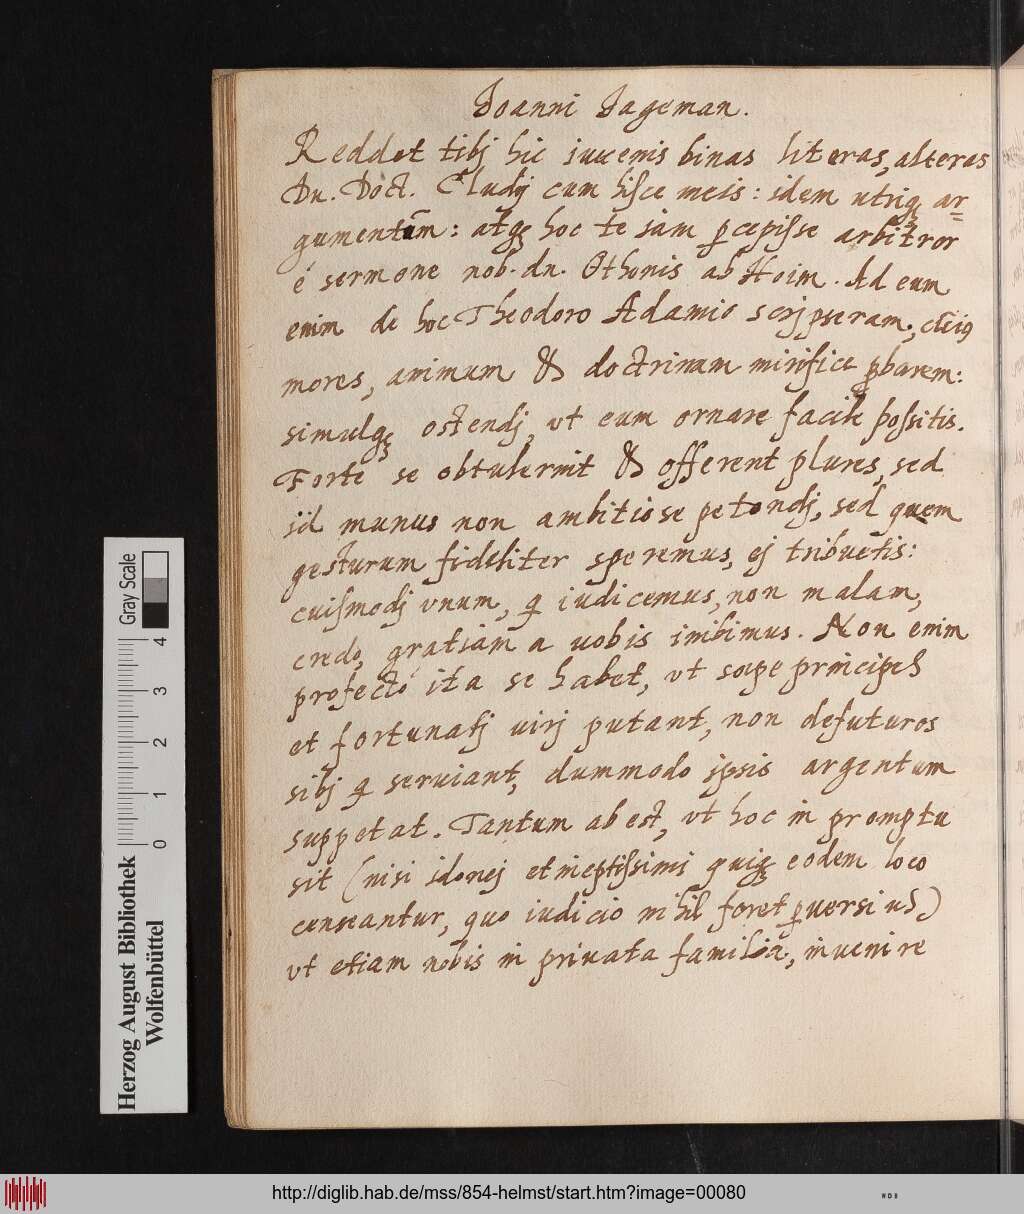 Joanni Jageman.
Reddet tibj hic iuuenis binas literas, alteras
Dn. Doct. Cludij cum hisce meis: idem utriq; ar=
gumentum: atq; hoc te iam p̱cepisse arbitror
é sermone nob. dn. Othonis ab Hoim. Ad eum
enim de hoc Theodoro Adamio scrjpseram, cuiq
mores, animum & doctrinam mirifice ꝓbarem:
simulq; ostendj, vt eum ornare facile possitis.
Forte se obtulerint & offerent plures, sed
id munus non ambitiose petendj, sed quem
gesturum fideliter speremus, ej tribuetis:
cuismodj vnum, q̄ iudicemus, non malam,
credo, gratiam a uobis inibimus. Non enim
profectó ita se habet, vt sæpe principes
et fortunatj uirj putant, non defuturos
sibj q̄ seruiant, dummodo ipsis argentum
suppetat. Tantum abest, vt hoc in promptu
sit (nisi idonej et ineptissimi quiq; eodem loco
censeantur, quo iudicio nihil foret p̱uersius)
vt etiam nobis in priuata familia, inuenire
Herzog August Bibliothek
Wolfenbüttel
0 1 2 3 4
Gray Scale
http://diglib.hab.de/mss/854-helmst/start.htm?image=00080
WDB